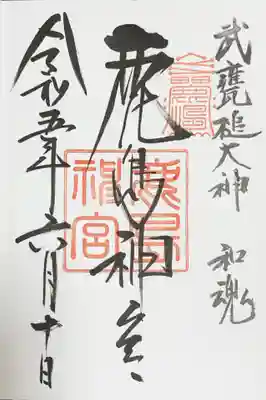 武甕槌大神 和魂
鹿島神宮
鹿島神宮
令和五年六月十日